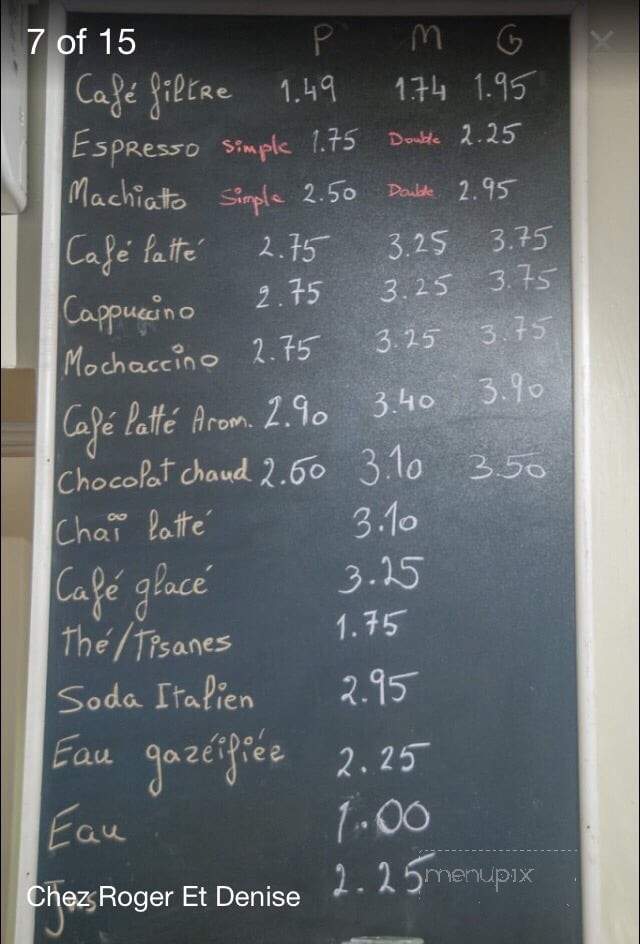 7 of 15
P M G
Café filtre 1.49 1.74 1.95
Espresso Simple 1.75 Double 2.25
Machiatto Simple 2.50 Double 2.95
Café latté 2.75 3.25 3.75
Cappuccino 2.75 3.25 3.75
Mochaccino 2.75 3.25 3.75
Café latté Arom. 2.90 3.40 3.90
Chocolat chaud 2.60 3.10 3.50
Chaï latté 3.10
Café glacé 3.25
Thé/Tisanes 1.75
Soda Italien 2.95
Eau gazéifiée 2.25
Eau 1.00
Jus 2.25
menupix
Chez Roger Et Denise